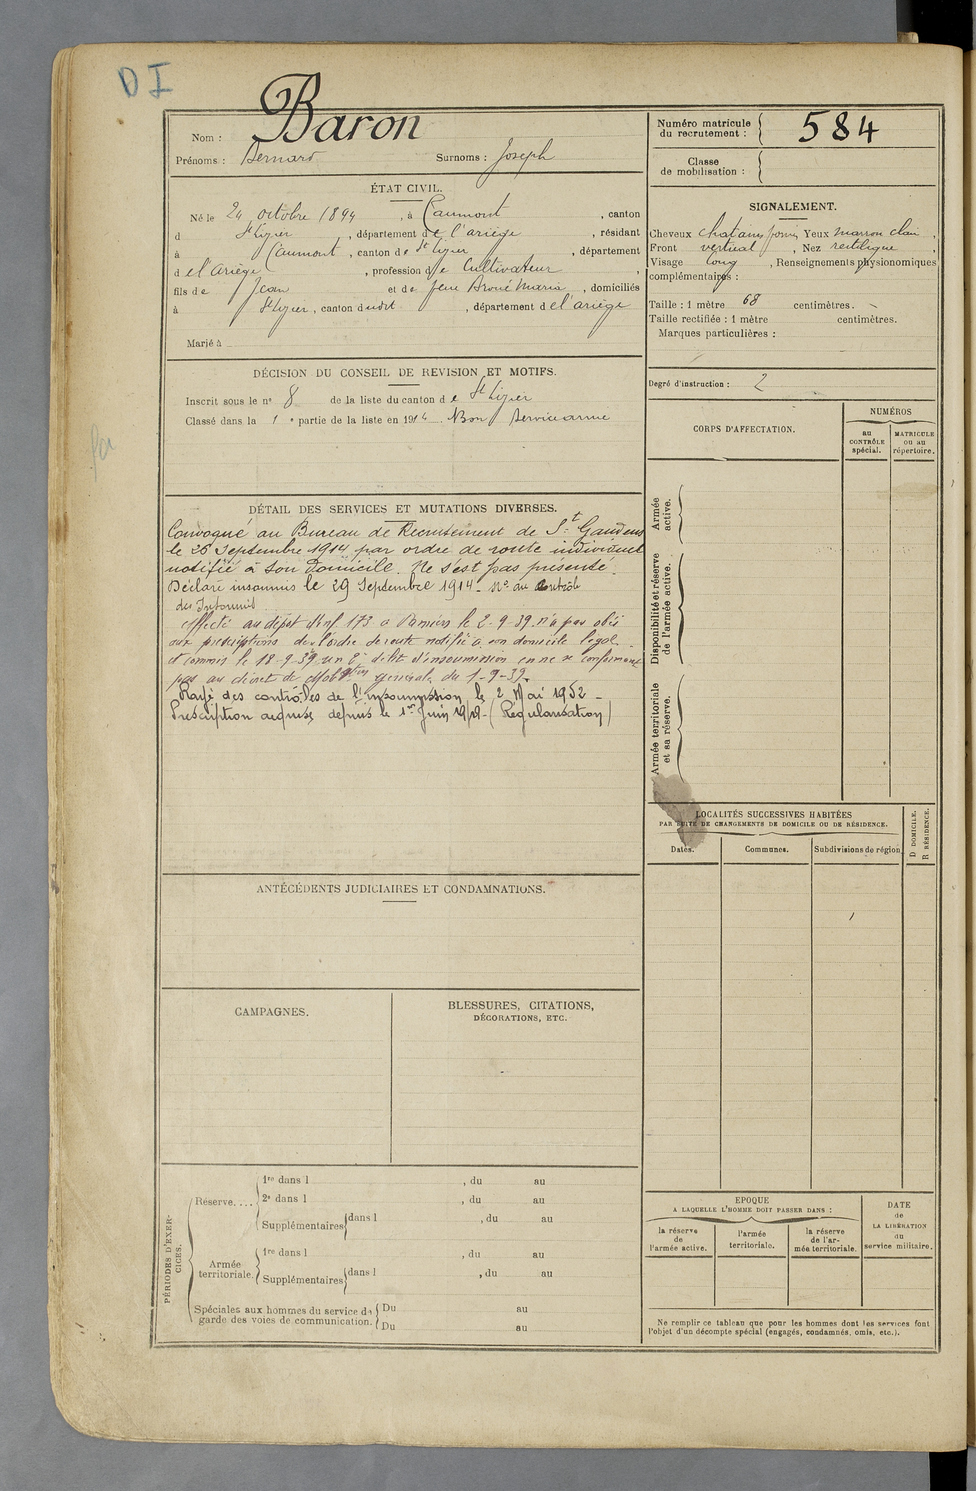 D I
Nom : Baron
Prénoms : Bernard Surnoms : Joseph
Numéro matricule du recrutement : 584
Classe de mobilisation :
ÉTAT CIVIL.
Né le 24 octobre 1894, à Caumont, canton
d St Lizier, département de l'ariège, résidant
à Caumont, canton de St Lizier, département
d el'Ariège, profession d e Cultivateur,
fils de Jean et de feue Maria, domiciliés
à St Lizier, canton dudit, département de l'ariège
Marié à
SIGNALEMENT.
Cheveux chatains Yeux marron clair,
Front vertical, Nez rectiligne,
Visage long, Renseignements physionomiques
complémentaires :
Taille : 1 mètre 68 centimètres.
Taille rectifiée : 1 mètre centimètres.
Marques particulières :
Degré d'instruction : 2
DÉCISION DU CONSEIL DE REVISION ET MOTIFS.
Inscrit sous le nº 8 de la liste du canton de St Lizier
Classé dans la 1 e partie de la liste en 1914. Bon Service armé
DÉTAIL DES SERVICES ET MUTATIONS DIVERSES.
Convoqué au Bureau de Recrutement de St Gaudens
le 26 Septembre 1914 par ordre de route individuel
notifié à son domicile. Ne s'est pas présenté.
Déclaré insoumis le 29 Septembre 1914. No au contrôle
des Insoumis
affecté au dépôt d'Inf. 173 à Pamiers le 2-9-39 n'a pas obéi
aux prescriptions de l'ordre de route notifié à son domicile légal
et commis le 18-9-39 un 2e délit d'insoumission en ne se conformant
pas au décret de Mobtion générale du 1-9-39.
Rayé des contrôles de l'insoumission le 2 Mai 1952 -
Prescription acquise depuis le 1er Juin 19 - (Régularisation)
CORPS D'AFFECTATION.
NUMÉROS
au CONTRÔLE spécial.
MATRICULE ou au répertoire.
Armée active.
Disponibilité et réserve de l'armée active.
Armée territoriale et sa réserve.
LOCALITÉS SUCCESSIVES HABITÉES
PAR SUITE DE CHANGEMENTS DE DOMICILE OU DE RÉSIDENCE.
Dates.
Communes.
Subdivisions de région
D DOMICILE.
R RÉSIDENCE.
ANTÉCÉDENTS JUDICIAIRES ET CONDAMNATIONS.
CAMPAGNES.
BLESSURES, CITATIONS,
DÉCORATIONS, ETC.
PÉRIODES D'EXERCICES.
Réserve....
1re dans l , du au
2e dans l , du au
Supplémentaires dans l , du au
Armée territoriale.
1re dans l , du au
Supplémentaires dans l , du au
Spéciales aux hommes du service de Du au
garde des voies de communication. Du au
EPOQUE
A LAQUELLE L'HOMME DOIT PASSER DANS :
la réserve de l'armée active.
l'armée territoriale.
la réserve de l'armée territoriale.
DATE
de
LA LIBÉRATION
du
service militaire.
Ne remplir ce tableau que pour les hommes dont les services font
l'objet d'un décompte spécial (engagés, condamnés, omis, etc.).